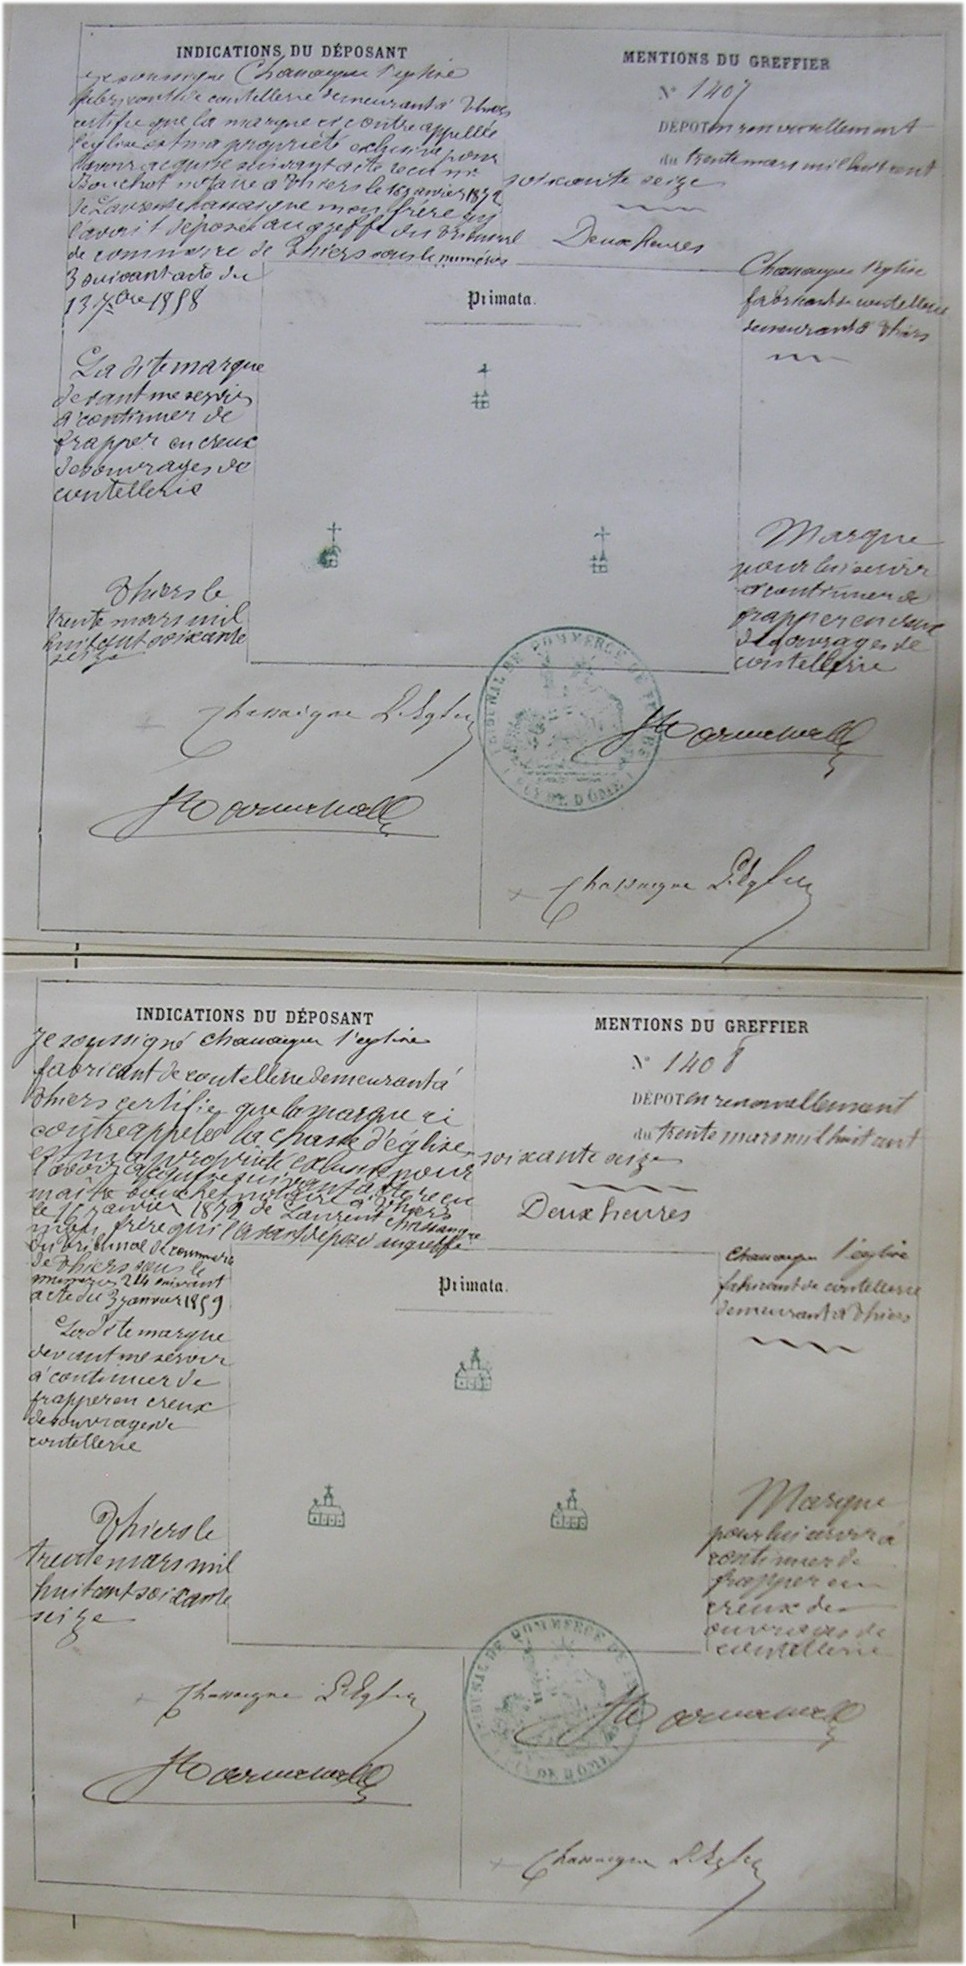 INDICATIONS DU DÉPOSANT
Je soussigné Chassaigne l'eglise
fabricant de coutellerie demeurant à Thiers
certifie que la marque ci contre appellée
l'église est ma propriété exclusive pour
l'avoir acquise suivant acte recu me
Bouchet notaire à Thiers le 16 janvier 1872
de Laurent chassaigne mon frère qui
l'avait déposée au greffe du tribunal
de commerce de Thiers sous le numéros
3 suivant acte du
13 7bre 1858
La dite marque
devant me servir
à continuer de
frapper en creux
des ouvrages de
coutellerie
Thiers le
trente mars mil
huit cent soixante
seize
Chassaigne L'Eglise
MENTIONS DU GREFFIER
N° 1407
DÉPOT en renouvellement
du trente mars mil huit cent
soixante seize
Deux heures
Primata.
Chassaigne l'eglise
fabricant de coutellerie
demeurant à Thiers
Marque
pour lui servir
à continuer de
frapper en creux
des ouvrages de
coutellerie
TRIBUNAL DE COMMERCE DE THIERS
PUY DE DÔME
Chassaigne L'Eglise
INDICATIONS DU DÉPOSANT
Je soussigné chassaigne l'eglise
fabricant de coutellerie demeurant à
Thiers certifie que la marque ci
contre appelée la chasse d'église
est ma propriété exclusive pour
l'avoir acquise suivant acte recu
maître Bouchet notaire à Thiers
le 16 janvier 1872 de Laurent chassaigne
mon frère qui l'avait déposé au greffe
du tribunal de commerce
de Thiers sous le
numéros 214 suivant
acte du 3 janvier 1859
La dite marque
devant me servir
à continuer de
frapper en creux
des ouvrages de
coutellerie
Thiers le
trente mars mil
huit cent soixante
seize
Chassaigne L'Eglise
MENTIONS DU GREFFIER
N° 1408
DÉPOT en renouvellement
du trente mars mil huit cent
soixante seize
Deux heures
Primata.
chassaigne l'eglise
fabricant de coutellerie
demeurant à Thiers
Marque
pour lui servir à
continuer de
frapper en
creux des
ouvrages de
coutellerie
TRIBUNAL DE COMMERCE DE
PUY DE DÔME
Chassaigne L'Eglise